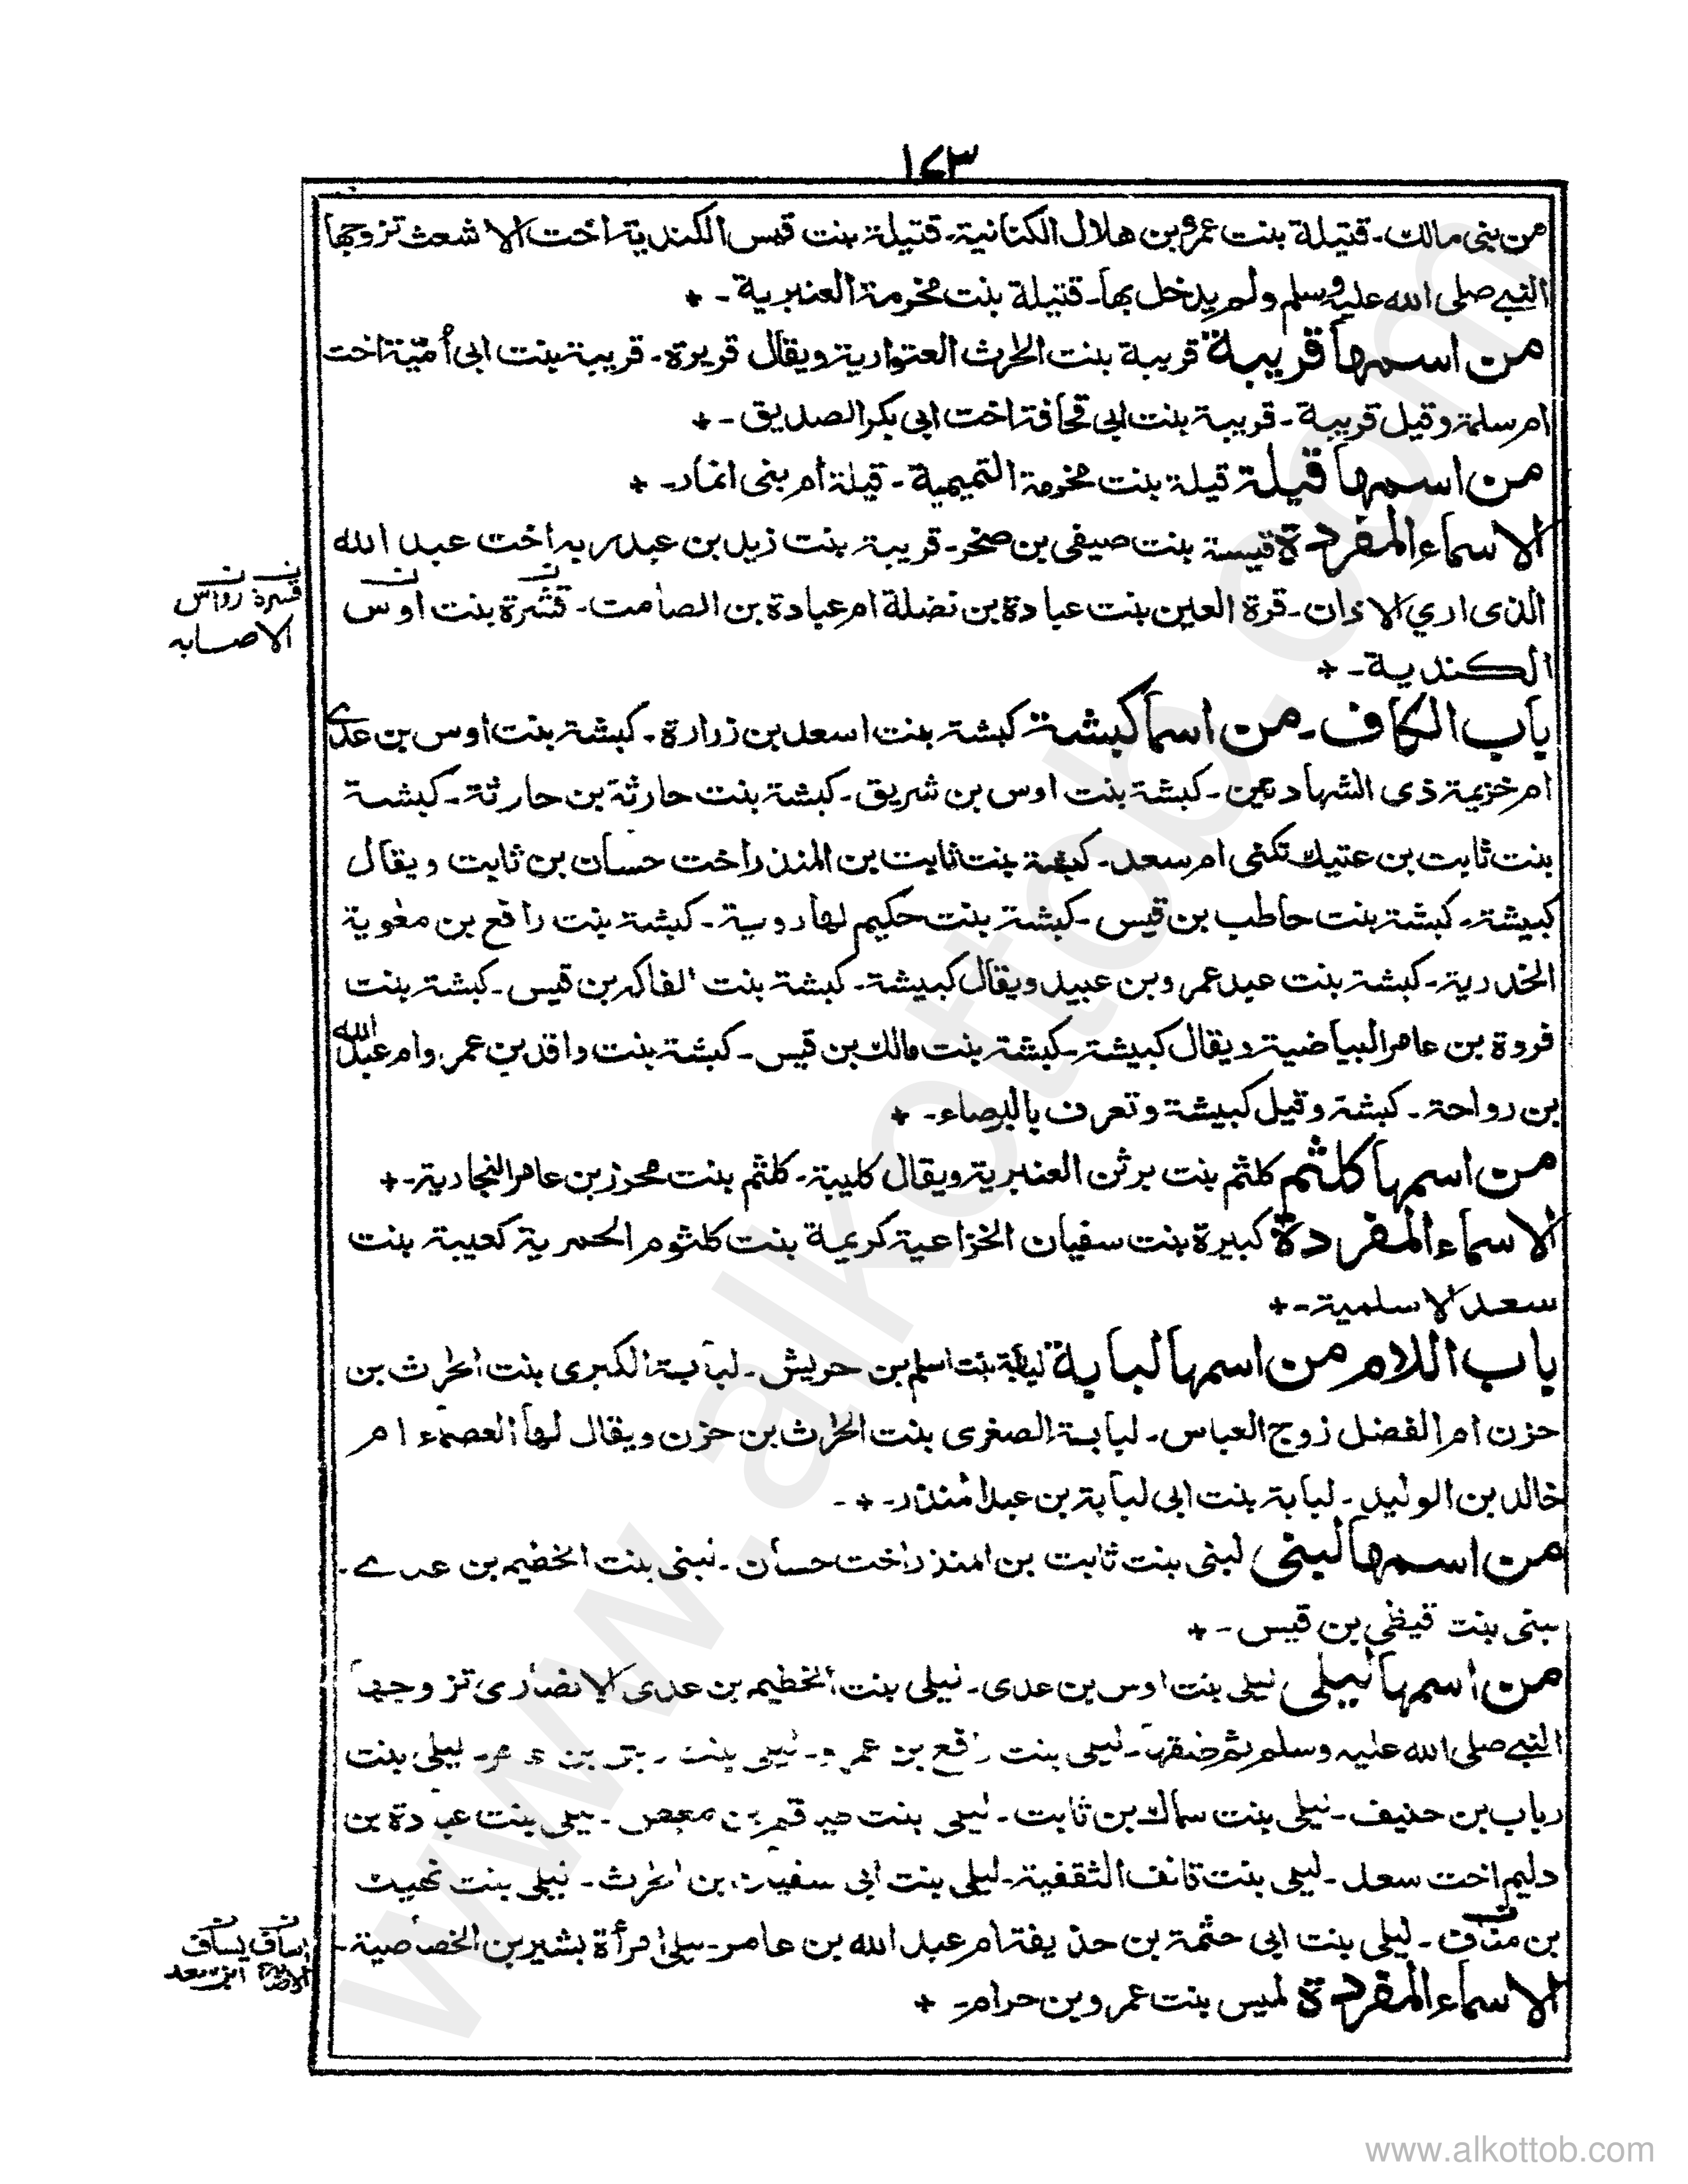 ١٤٣
من بنى مالك ـ قتيلة بنت عمرو بن هلال الكنانية ـ قتيلة بنت قيس الكندية اخت الاشعث تزوجها
النبي صلى الله عليه وسلم ولم يدخل بها ـ قتيلة بنت مخرمة العنبرية ـ +
من اسمها قريبة قريبة بنت الحرث العتوارية ويقال قريرة ـ قريبة بنت ابى أمية اخت
ام سلمة وقيل قريبة ـ قريبة بنت ابى قحافة اخت ابى بكر الصديق ـ +
من اسمها قيلة قيلة بنت مخرمة التميمية ـ قيلة ام بنى انمار ـ +
الاسماء المفردة قيسة بنت صيفى بن صخر ـ قريبة بنت زيد بن عبد ربه اخت عبد الله
الذى اري الاذان ـ قرة العين بنت عبادة بن نضلة ام عبادة بن الصامت ـ قشرة بنت اوس
قسرة رواس
الاصابه
الكندية ـ +
باب الكاف ـ من اسما كبشة كبشة بنت اسعد بن زرارة ـ كبشة بنت اوس بن عدى
ام خزيمة ذى الشهادتين ـ كبشة بنت اوس بن شريق ـ كبشة بنت حارثة بن حارثة ـ كبشة
بنت ثابت بن عتيك تكنى ام سعد ـ كبشة بنت ثابت بن المنذر اخت حسان بن ثابت ويقال
كبيشة ـ كبشة بنت حاطب بن قيس ـ كبشة بنت حكيم لها روية ـ كبشة بنت رافع بن معوية
الخدرية ـ كبشة بنت عبد عمرو بن عبيد ويقال كبيشة ـ كبشة بنت الفاكه بن قيس ـ كبشة بنت
فروة بن عامر البياضية ويقال كبيشة ـ كبشة بنت مالك بن قيس ـ كبشة بنت واقد بن عمرو ام عبد الله
بن رواحة ـ كبشة وقيل كبيشة وتعرف بالبرصاء ـ +
من اسمها كلثم كلثم بنت برثن العنبرية ويقال كليبة ـ كلثم بنت محرز بن عامر النجارية ـ +
الاسماء المفردة كبيرة بنت سفيان الخزاعية كريمة بنت كلثوم الحميرية كعيبة بنت
سعد الاسلمية ـ +
باب اللام من اسمها لبابة لبابة بنت اسلم بن حريش ـ لبابة الكبرى بنت الحرث بن
حزن ام الفضل زوج العباس ـ لبابة الصغرى بنت الحرث بن حزن ويقال لها العصماء ام
خالد بن الوليد ـ لبابة بنت ابى لبابة بن عبد المنذر ـ + ـ
من اسمها لبنى لبنى بنت ثابت بن المنذر اخت حسان ـ لبنى بنت الخطيم بن عدى ـ
لبنى بنت قيظى بن قيس ـ +
من اسمها ليلى ليلى بنت اوس بن عدى ـ ليلى بنت الخطيم بن عدى الانصارى تزوجها
النبي صلى الله عليه وسلم ثم ـ ليلى بنت رافع بن عمرو ـ ليلى بنت ـ ليلى بنت
رباب بن حنيف ـ ليلى بنت سماك بن ثابت ـ ليلى بنت ـ ليلى بنت عبادة بن
دليم اخت سعد ـ ليلى بنت قانف الثقفية ـ ليلى بنت ابى سفيان بن الحرث ـ ليلى بنت نهيك
بن ـ ليلى بنت ابى حثمة بن حذيفة ام عبد الله بن عامر ـ ليلى امرأة بشير بن الخصاصية ـ
اساف يساف
الاصابة ابن سعد
الاسماء المفردة لميس بنت عمرو بن حرام ـ +
www.alkottob.com